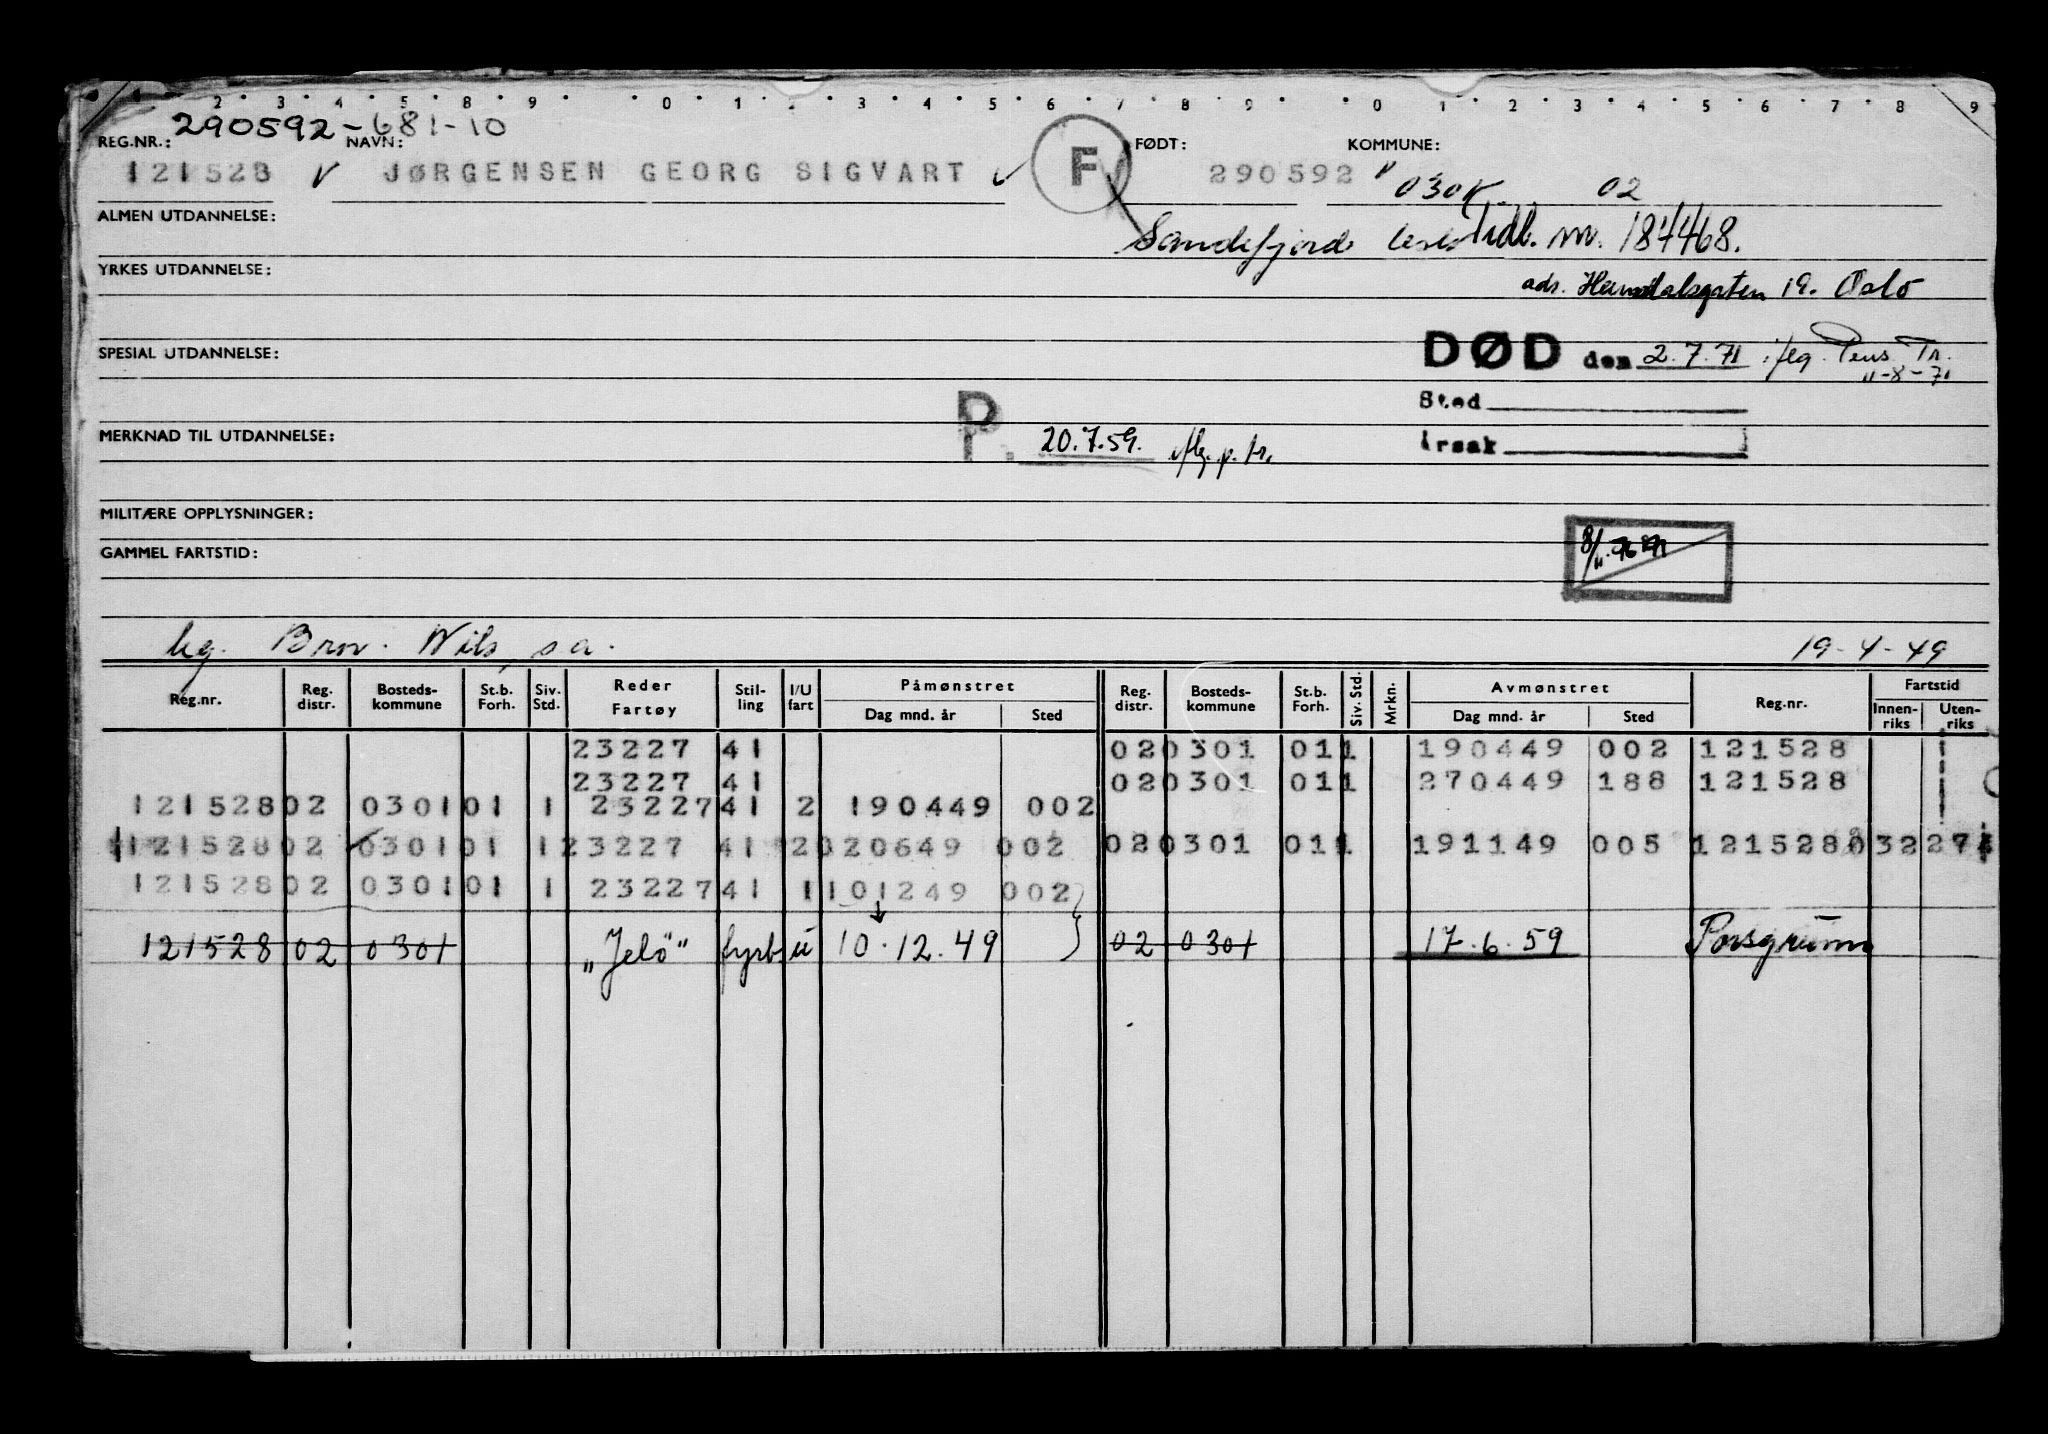 2 3 4 5 8 9 0 1 2 3 4 5 6 7 8 9 0 1 2 3 4 5 6 7 8 9
290592-681-10
REG.NR.: NAVN: FØDT: KOMMUNE:
121528 JØRGENSEN GEORG SIGVART F 290592 030 02
ALMEN UTDANNELSE:
Sandefjord Tidl. nr. 184468.
YRKES UTDANNELSE:
adr. Heimdalsgaten 19. Oslo
SPESIAL UTDANNELSE:
DØD den 2.7.71 iflg. Pens. Tr.
11-8-71
Sted
P. 20.7.59. iflg. p. tr.
MERKNAD TIL UTDANNELSE:
årsak
MILITÆRE OPPLYSNINGER:
GAMMEL FARTSTID:
leg. Brev. 19-4-49
Reg.nr. Reg. distr. Bosteds- kommune St.b. Forh. Siv. Std. Reder Fartøy Stil- ling I/U fart Påmønstret Dag mnd. år Sted Reg. distr. Bosteds- kommune St.b. Forh. Siv. Std. Mrkn. Avmønstret Dag mnd. år Sted Reg.nr. Fartstid Innen- riks Uten- riks
23227 41 02 0301 01 1 190449 002 121528
23227 41 02 0301 01 1 270449 188 121528
121528 02 0301 01 1 23227 41 2 190449 002
121528 02 0301 01 1 23227 41 2 020649 002 02 0301 01 1 191149 005 121528
121528 02 0301 01 1 23227 41 1 101249 002
121528 02 0301 „Jelö" fyrb u 10.12.49 02 0301 17.6.59 Porsgrunn